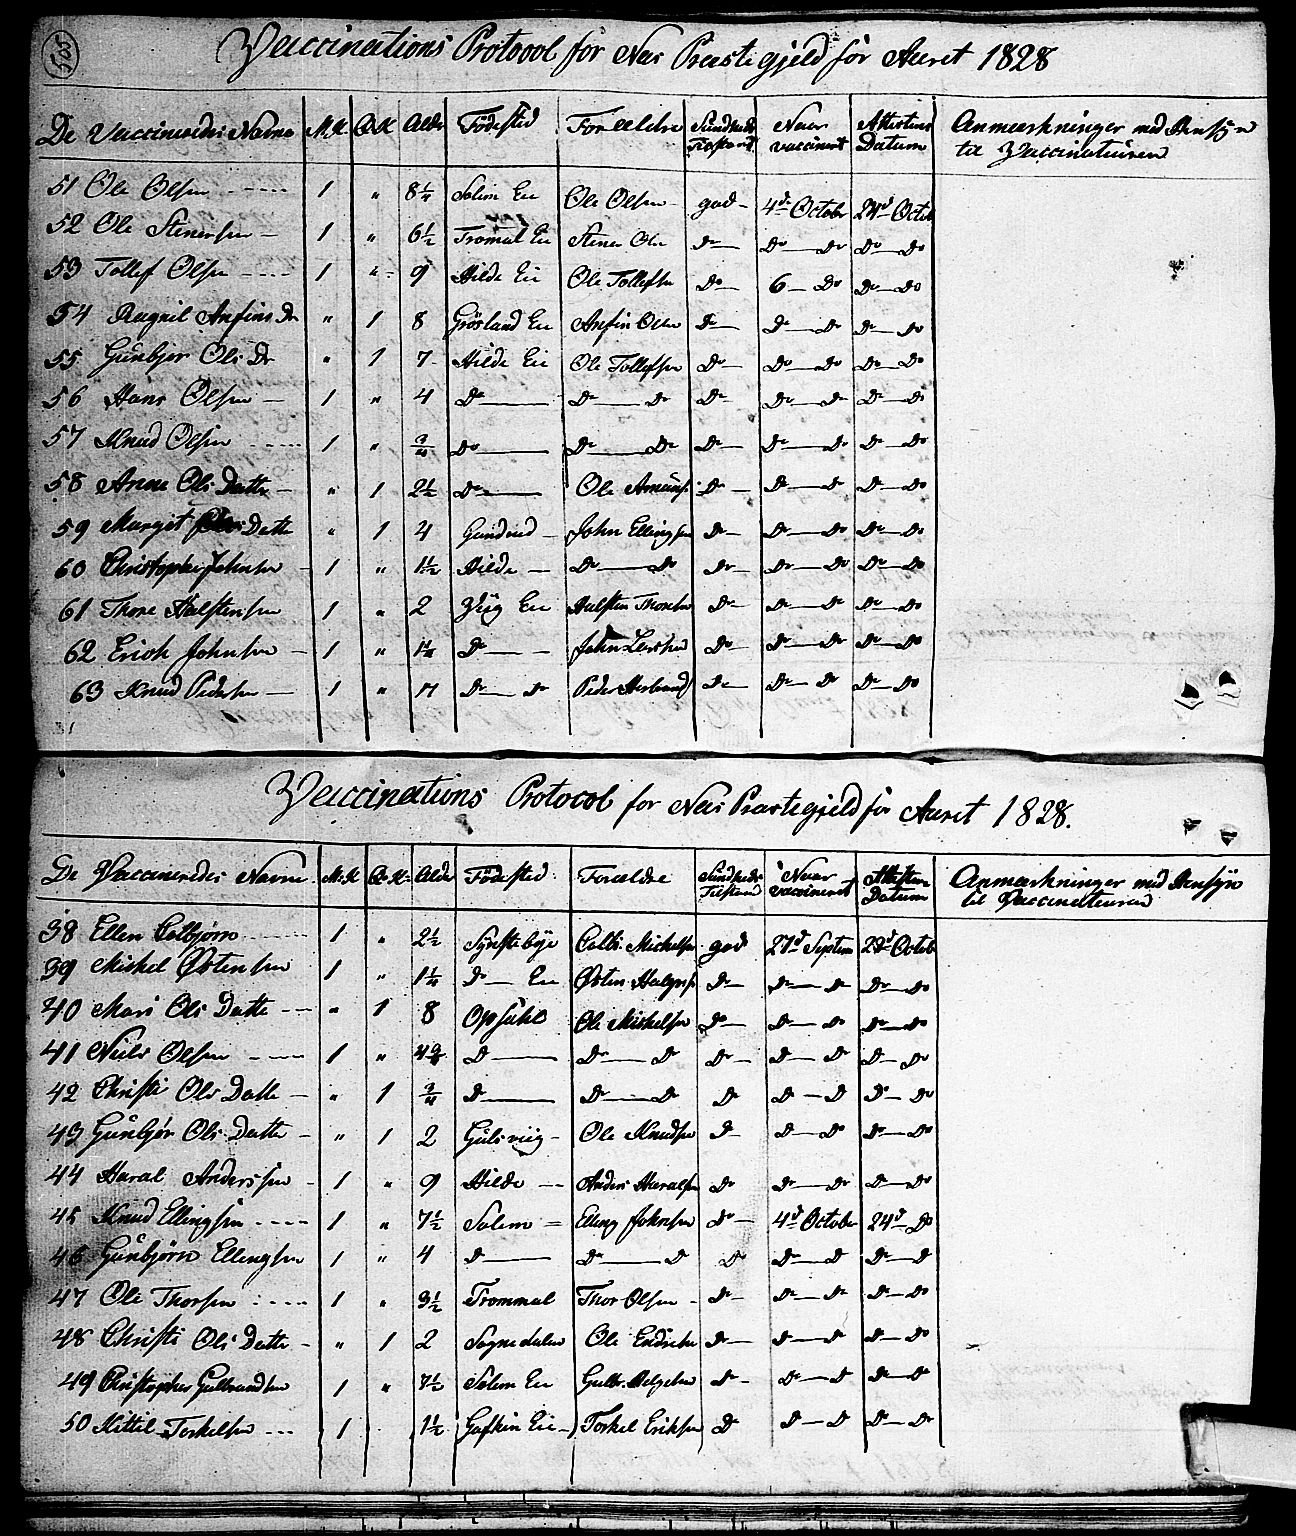 Vaccinations Protocol for Næs Præstegjeld for Aaret 1828
De Vaccineredes Navne M.K. Q.K Alder Födested Forældre Sundheds Tilstand Naar vaccineret Attestens Datum Anmærkninger med Hensyn til Vaccinateuren
51 Ole Olsen 1 " 8¼ Solem Eie Ole Olsen god 4de October 24d Octob
52 Ole Stenersen 1 " 6½ Trommal Eie Stener Ols Do Do Do Do Do
53 Tollef Olsen 1 " 9 Hilde Eie Ole Tollefsen Do 6 Do Do Do
54 Ragnil Anfins Dr " 1 8 Grösland Eie Anfin Olsen Do Do Do Do Do
55 Gunbjør Ols Dr " 1 7 Hilde Eie Ole Tollefsen Do Do Do Do Do
56 Hans Olsen 1 " 4 Do Do Do Do Do Do Do Do
57 Knud Olsen 1 " ¾ Do Do Do Do Do Do Do Do
58 Anne Ols Datte " 1 2½ Do Ole Amuns. Do Do Do Do Do
59 Margit Datte " 1 4 John Ellingsen Do Do Do Do Do
60 Christopher Johnsen 1 " 1½ Hilde Do Do Do Do Do Do Do
61 Thore Halstensen 1 " 2 Viig Eie Halsten Thoresen Do Do Do Do Do
62 Erich Johnsen 1 " 1¼ Do John Do Do Do Do Do
63 Knud Pedersen 1 " Do Do Peder Herbrand Do Do Do Do Do
Vaccinations Protocol for Næs Præstegjeld for Aaret 1828.
De Vaccineredes Navne M.K Q.K. Alder Födested Forældre Sundheds Tilstand Naar vaccineret Attestens Datum Anmærkninger med Hensyn til Vaccinateuren
38 Ellen Colbjørn 1 " 2½ Synstebye Colb. Michelsen god 27d Septem 28d Octob
39 Mickel Østensen 1 " 1¼ Do Eie Østen Halgrs. Do Do Do Do Do
40 Mari Ols Datte " 1 8 Opsahl Ole Mickelsen Do Do Do Do Do
41 Niels Olsen 1 " 4¾ D Do D Do D Do D Do
42 Christi Ols Datte " 1 ¾ D D D D D D D do
43 Gunbjør Ols Datte " 1 2 Gulsviig Ole Knudsen D D Do Do Do
44 Haral Andersen 1 " 9 Hilde Anders Haralsen Do Do Do Do Do
45 Knud Ellingsen 1 " 7½ Solem Elling Johnsen Do 4d October 24d Do
46 Gunbjørn Ellingsen 1 " 4 D Do D D Do D Do D
47 Ole Thorsen 1 " 3½ Trommal Thor Olsen Do Do Do Do Do
48 Christi Ols Datte " 1 2 Sognedalen Ole Endresen Do Do D Do Do
49 Christopher Gulbrandsen 1 " 7½ Solem Eie Gulb. Helgesen Do Do D Do D
50 Kittil Torkelsen 1 1½ Eie Torkel Eriksen D D D D Do